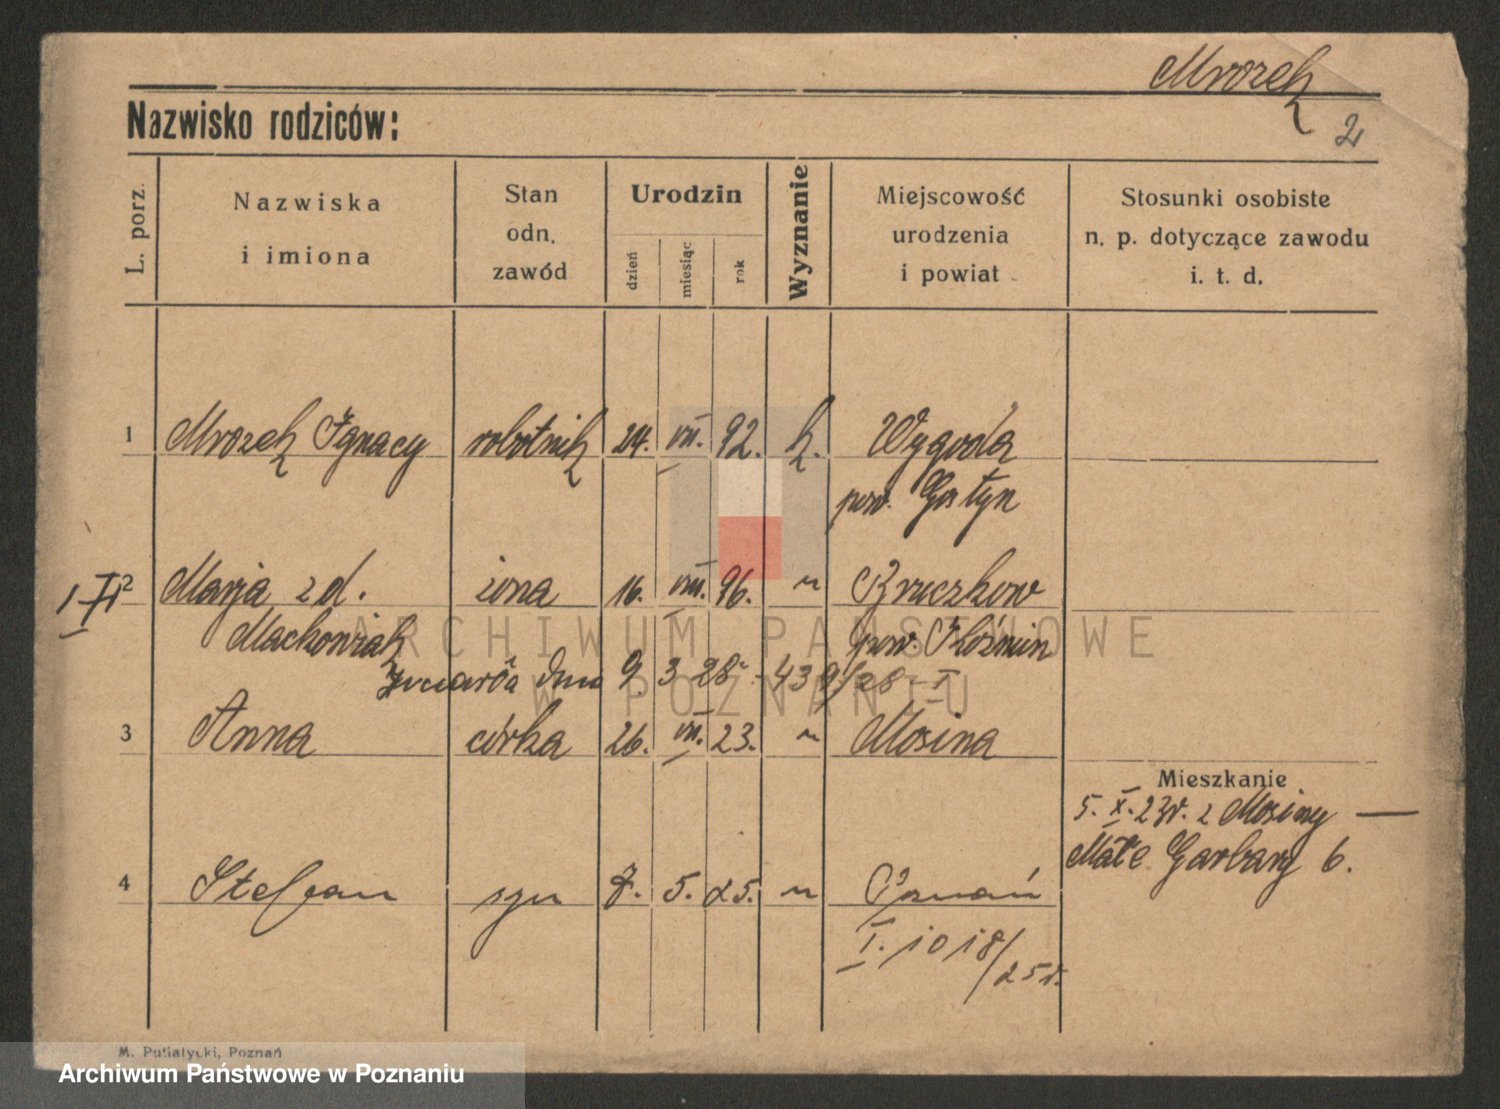 Mrozek
Nazwisko rodziców:
2
L. porz.
Nazwiska
i imiona
Stan
odn.
zawód
Urodzin
dzień
miesiąc
rok
Wyznanie
Miejscowość
urodzenia
i powiat
Stosunki osobiste
n. p. dotyczące zawodu
i. t. d.
1 Mrozek Ignacy robotnik 24. VII. 92. k. Wygoda
pow. Gostyn
2 Marja z d. żona 16. VIII. 96. " Bruczkow
Machowiak pow. Koźmin
Zmarła dnia 9. 3. 28 439/28 I
3 Anna córka 26. VII. 23. " Mosina
Mieszkanie
5. X. 23r. z Mosiny —
Małe Garbary 6.
4 Stefan syn 7. 5. 25. " Poznań
I. 1018/25r.
ARCHIWUM PAŃSTWOWE
W POZNANIU
M. Putiatycki, Poznań
Archiwum Państwowe w Poznaniu